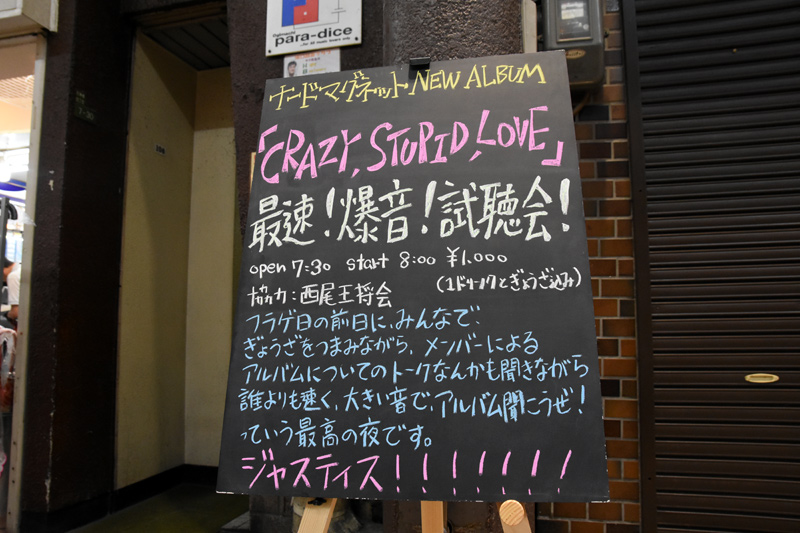 para-dice
ナードマグネット NEW ALBUM
「CRAZY, STUPID, LOVE」
最速!爆音!試聴会!
open 7:30 start 8:00 ¥1,000
(1ドリンクとぎょうざ込み)
協力:西尾王将会
フラゲ日の前日に、みんなで
ぎょうざをつまみながら、メンバーによる
アルバムについてのトークなんかも聞きながら
誰よりも速く、大きい音で、アルバム聞こうぜ!
っていう最高の夜です。
ジャスティス!!!!!!!